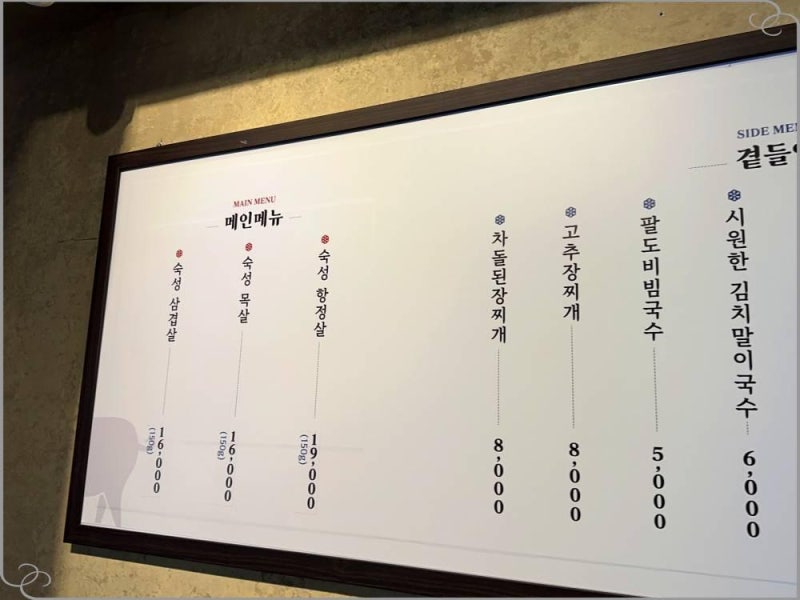 MAIN MENU
메인메뉴
숙성 삼겹살
16,000
(150g)
숙성 목살
16,000
(150g)
숙성 항정살
19,000
(150g)
SIDE ME
곁들
차돌된장찌개
8,000
고추장찌개
8,000
팔도비빔국수
5,000
시원한 김치말이국수
6,000